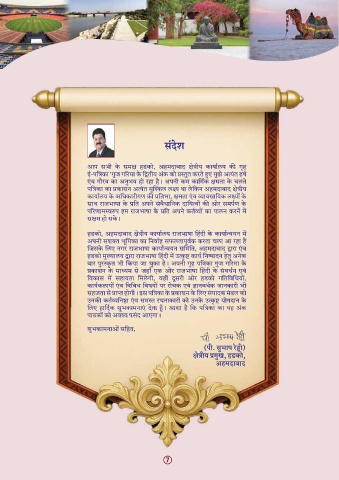 संदेश
आप सभी के समक्ष हडको, अहमदाबाद क्षेत्रीय कार्यालय की गृह
ई-पत्रिका 'गूंज गरिमा के द्वितीय अंक को प्रस्तुत करते हुए मुझे अत्यंत हर्ष
एंव गौरव का अनुभव हो रहा है। अपनी कम कार्मिक क्षमता के चलते
पत्रिका का प्रकाशन अत्यंत मुश्किल लक्ष्य था लेकिन अहमदाबाद क्षेत्रीय
कार्यालय के अधिकारीगण की प्रतिभा, क्षमता एंव व्यावसायिक लक्ष्यों के
साथ राजभाषा के प्रति अपने संवैधानिक दायित्वों की ओर समर्पण के
परिणामस्वरुप हम राजभाषा के प्रति अपने कर्तव्यों का पालन करने में
सक्षम हो सके।
हडको, अहमदाबाद क्षेत्रीय कार्यालय राजभाषा हिंदी के कार्यान्वयन में
अपनी सशक्त भूमिका का निर्वाह सफलतापूर्वक करता चला आ रहा है
जिसके लिए नगर राजभाषा कार्यान्वयन समिति, अहमदाबाद द्वारा एंव
हडको मुख्यालय द्वारा राजभाषा हिंदी में उत्कृष्ट कार्य निष्पादन हेतु अनेक
बार पुरस्कृत भी किया जा चुका है। अपनी गृह पत्रिका गूंज गरिमा के
प्रकाशन के माध्यम से जहाँ एक ओर राजभाषा हिंदी के संवर्धन एवं
विकास में सहायता मिलेगी, वहीं दूसरी ओर हडको गतिविधियों,
कार्यकलापों एंव विविध विषयों पर रोचक एवं ज्ञानवर्धक जानकारी भी
सहजता से प्राप्त होगी। इस पत्रिका के प्रकाशन के लिए संपादक मंडल को
उनकी कर्तव्यनिष्ठा एंव समस्त रचनाकारों को उनके उत्कृष्ट योगदान के
लिए हार्दिक शुभकामनाएं देता हूँ। आशा है कि पत्रिका का यह अंक
पाठकों को अवश्य पसंद आएगा।
शुभकामनाओं सहित,
पी. सुभाष रेड्डी
(पी. सुभाष रेड्डी)
क्षेत्रीय प्रमुख, हडको,
अहमदाबाद
7